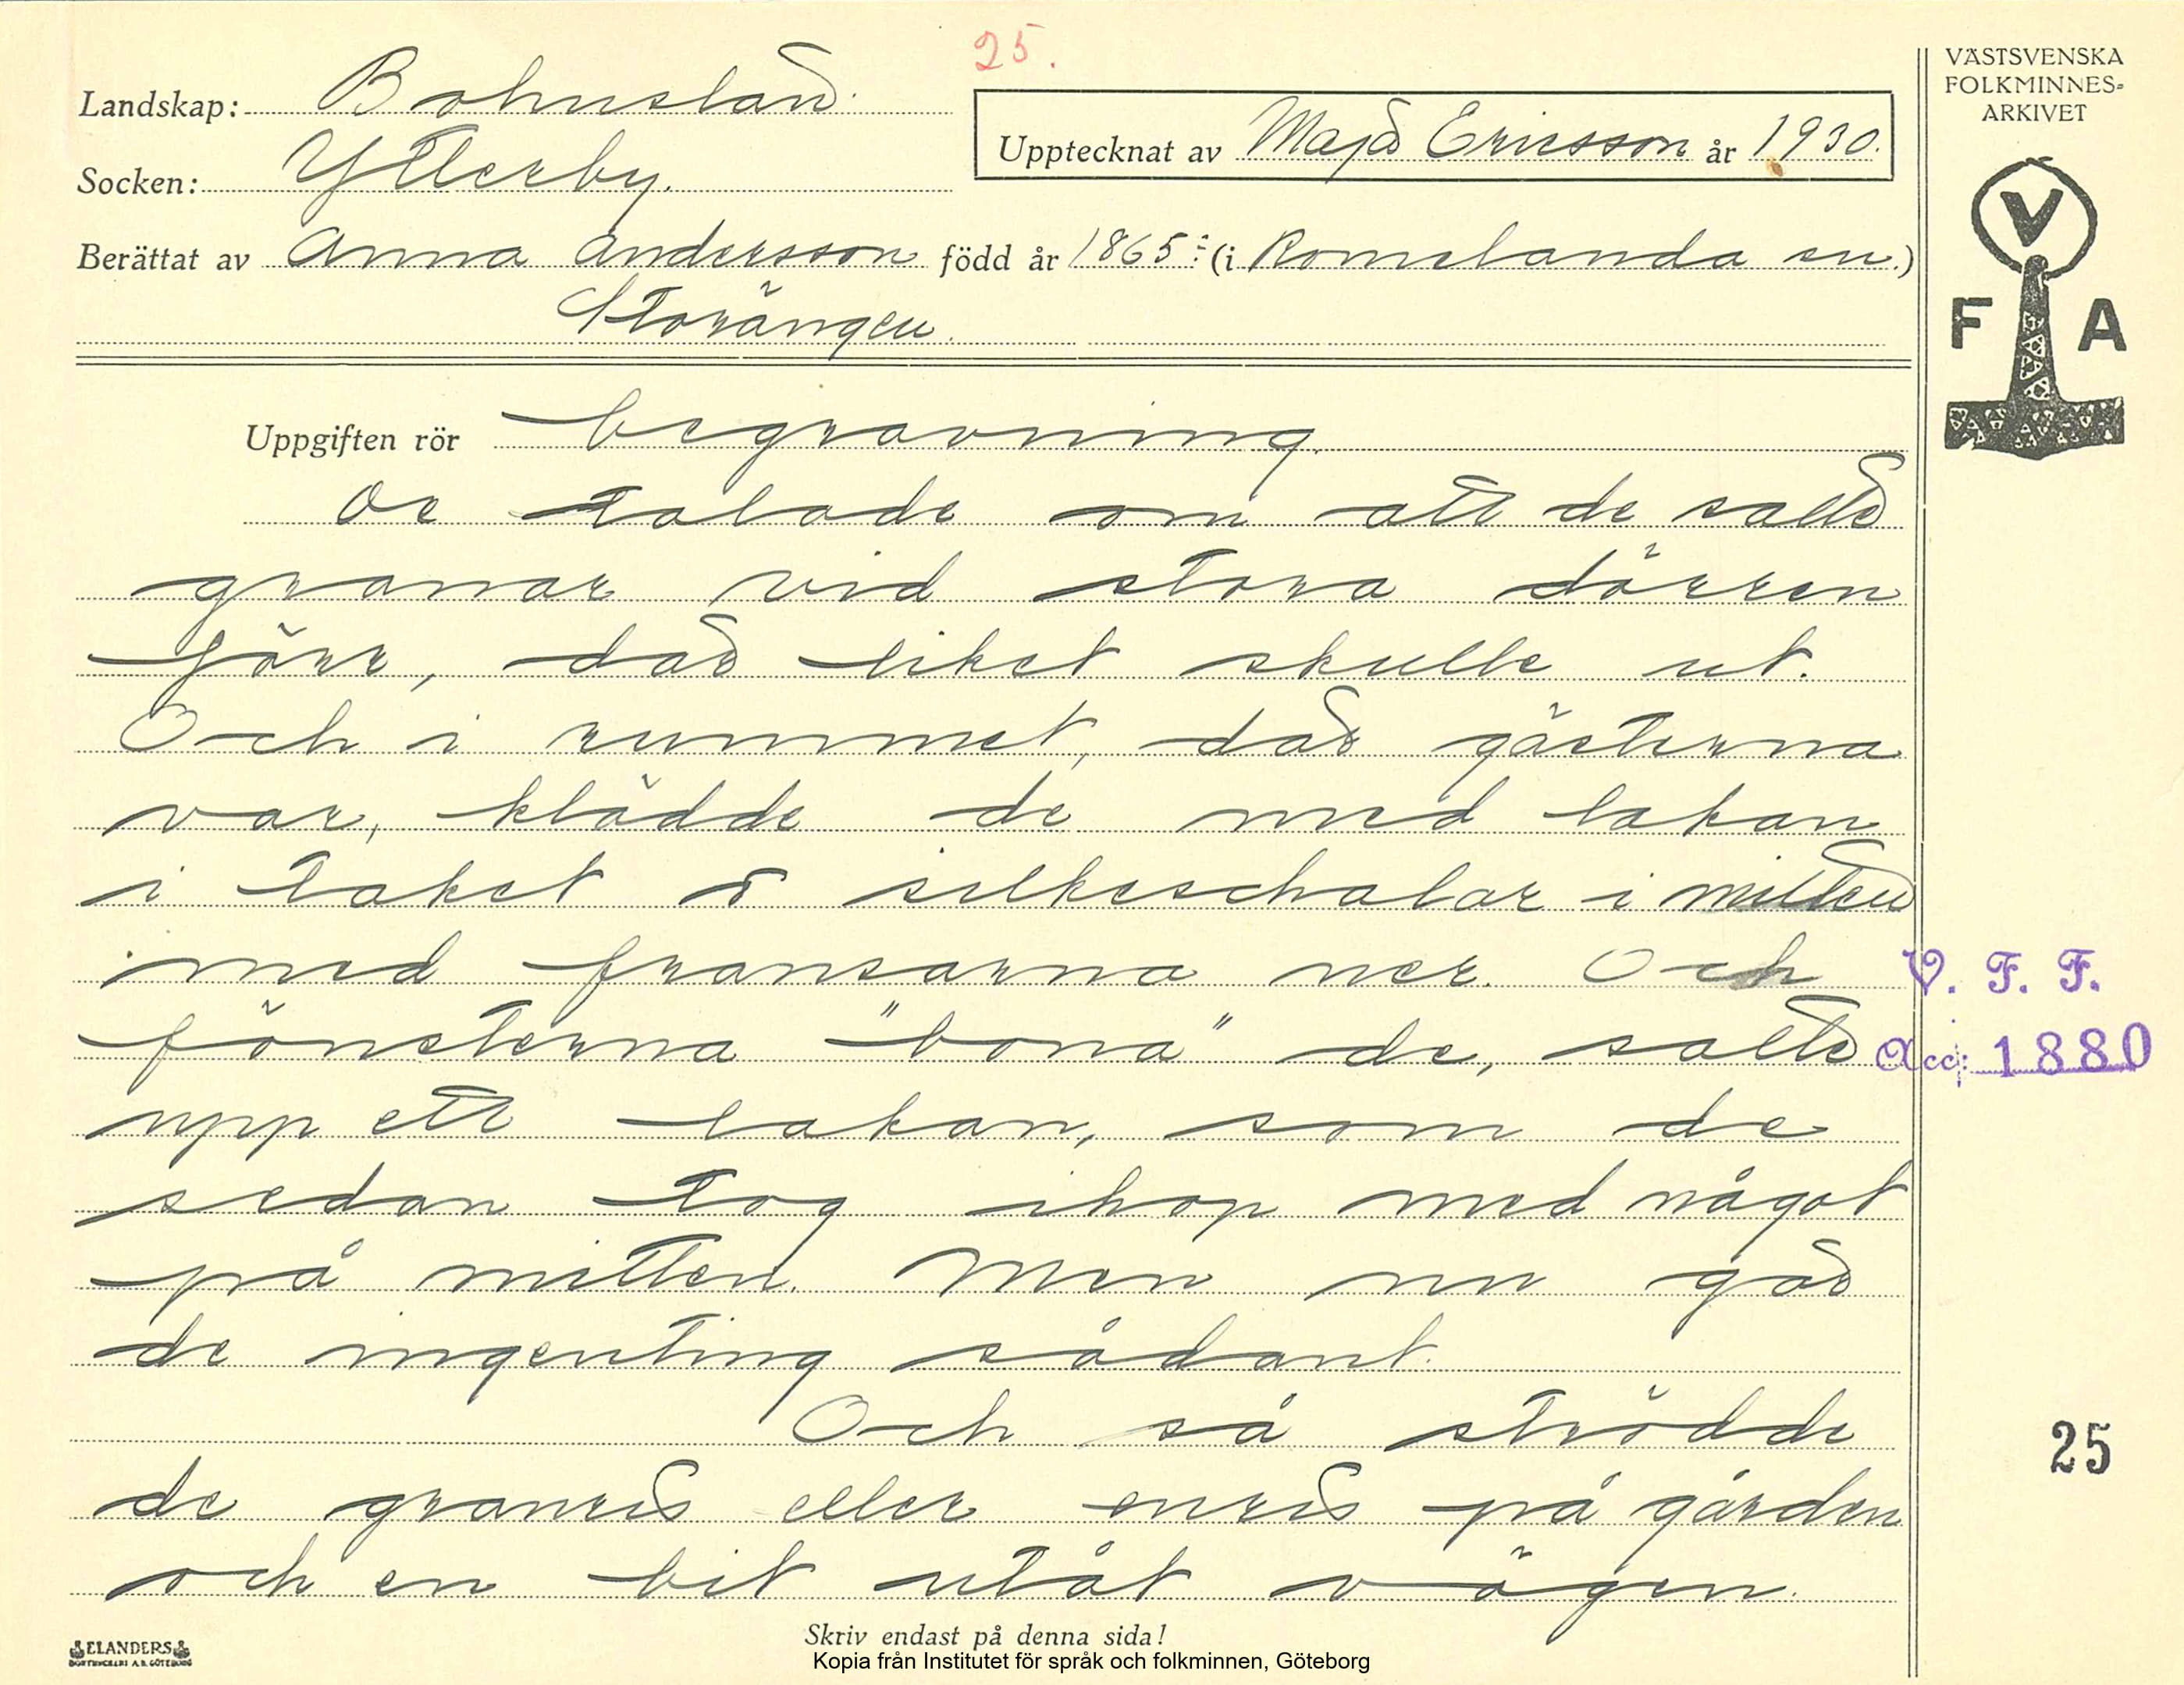 25.
Landskap: Bohuslän.
Socken: Ytterby.
Upptecknat av Majs Ericsson år 1930.
Berättat av Anna Andersson född år 1865 (i Romelanda sn.)
Storängen.
VÄSTSVENSKA
FOLKMINNES-
ARKIVET
V
F A
Uppgiften rör begravning.
De talade om att de satte
granar vid stora dörren
förr, där liket skulle ut.
Och i rummet, där gästerna
var, klädde de med lakan
i taket o silkeschalar i mitten
med fransarna ner. Och
fönsterna "bona" de, satte
upp ett lakan, som de
sedan tog ihop med något
på mitten. Men nu gör
de ingenting sådant.
Och så strödde
de granris eller enris på gården
och en bit utåt vägen.
V. F. F.
Acc: 1880
25
Skriv endast på denna sida!
ELANDERS
BOKTRYCKERI A.B. GÖTEBORG
Kopia från Institutet för språk och folkminnen, Göteborg